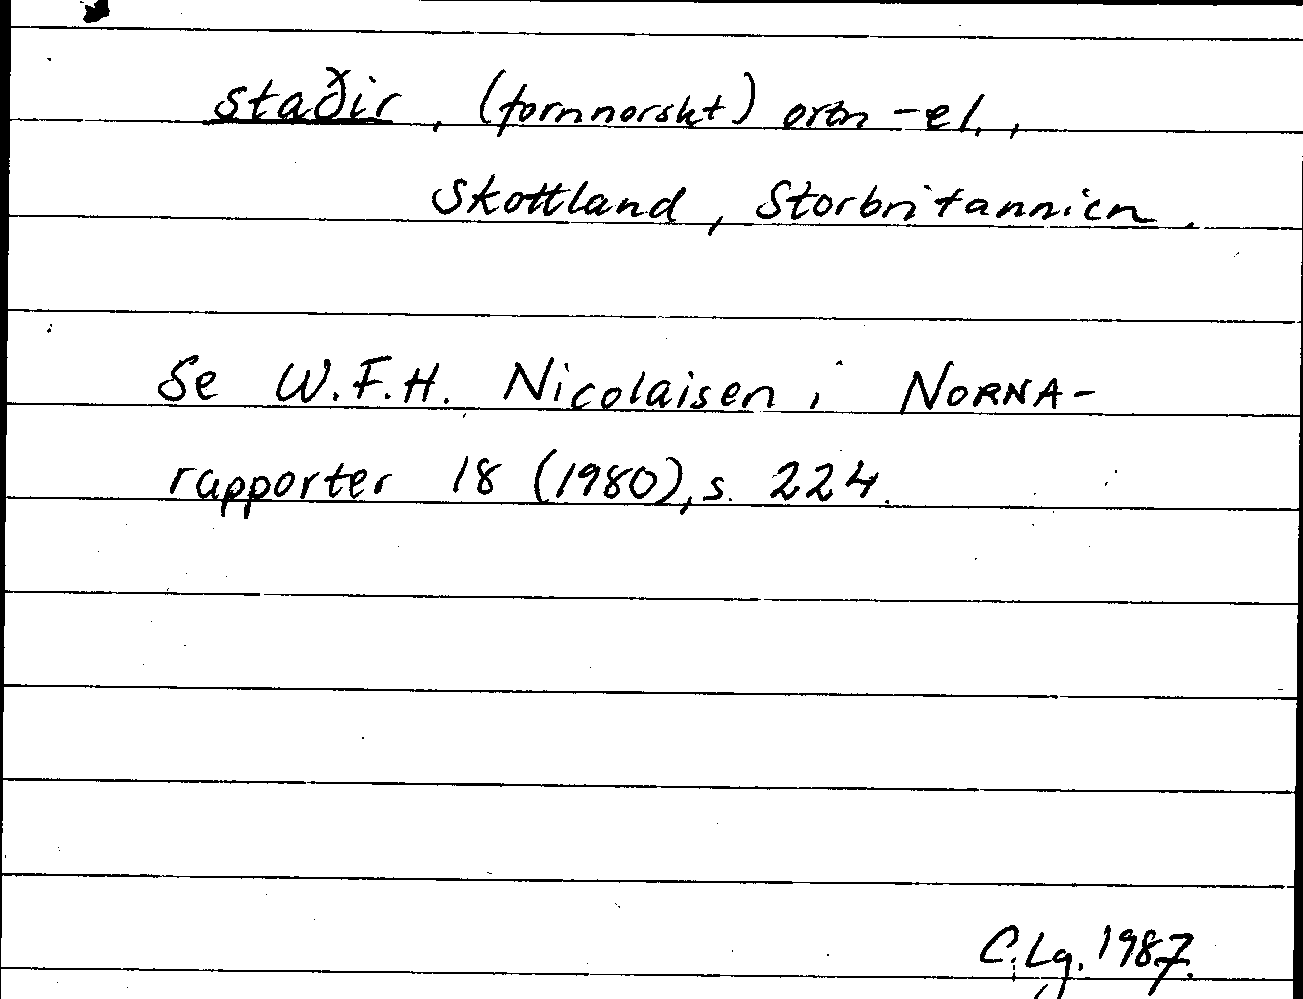 staðir, (fornnorskt) ortn-el.,
Skottland, Storbritannien.
Se W.F.H. Nicolaisen i NORNA-
rapporter 18 (1980), s. 224.
C. Lg. 1987.